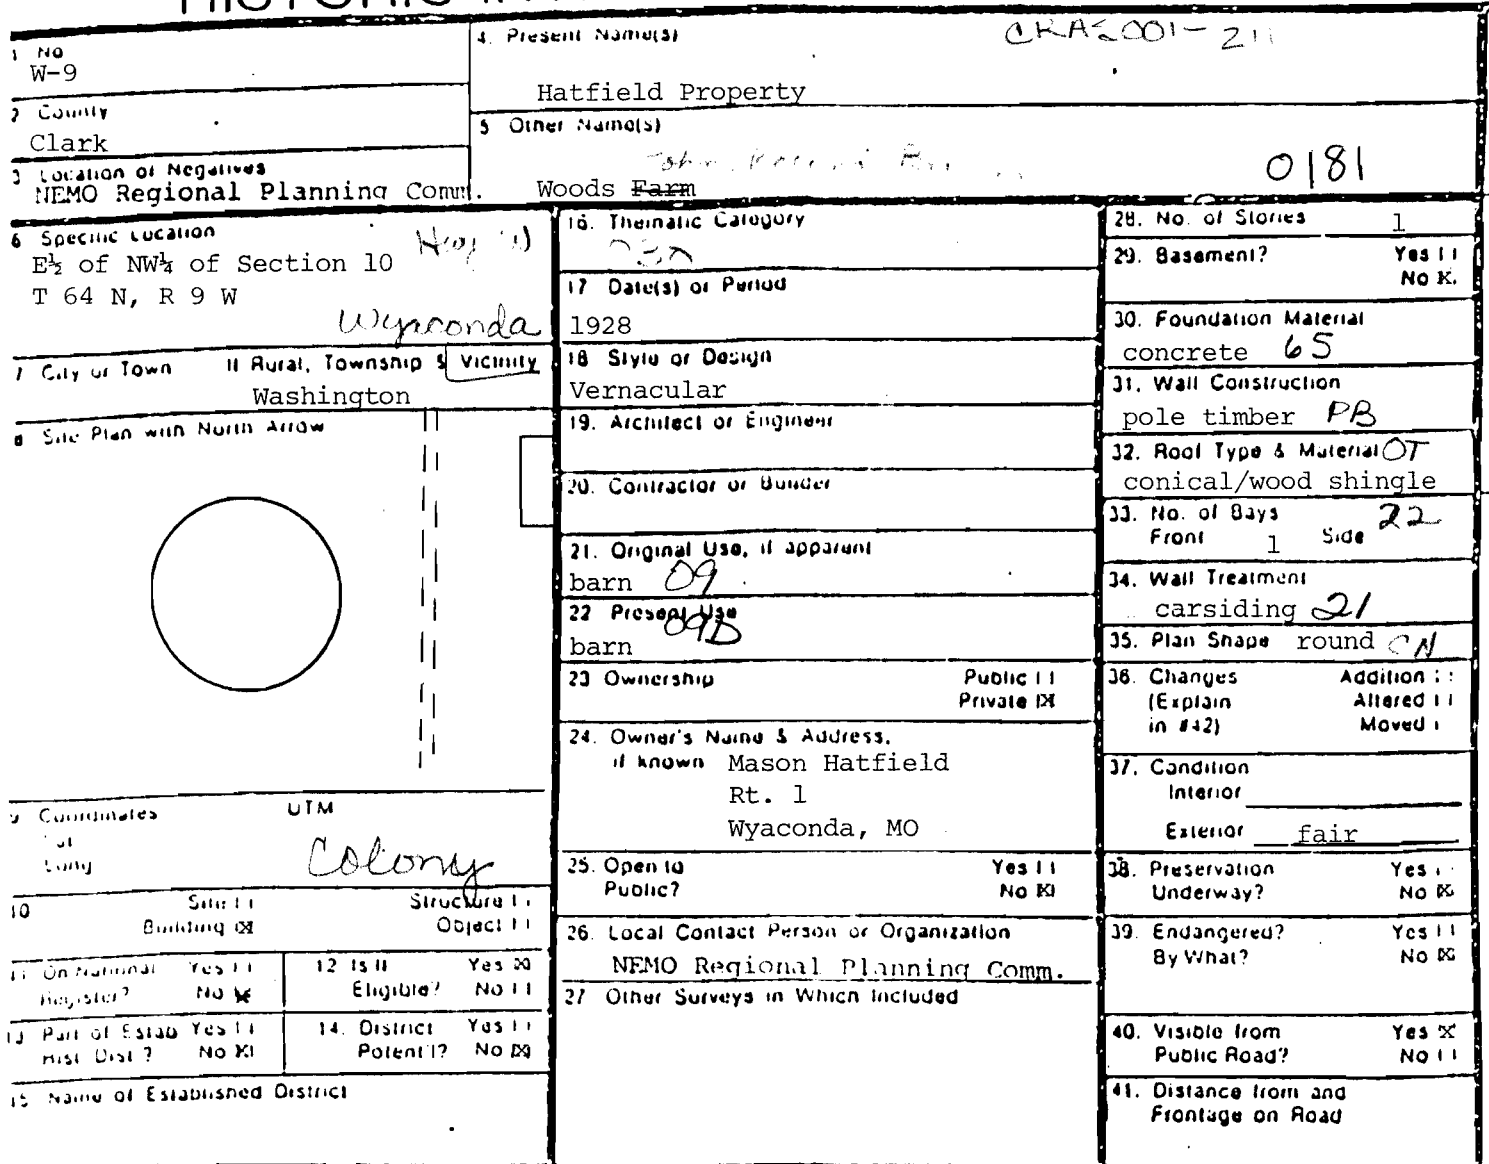 1 No
W-9
4. Present Name(s)
CRAS001-211
Hatfield Property
2 County
Clark
5 Other Name(s)
John
0181
Woods Farm
3 Location of Negatives
NEMO Regional Planning Comm.
6 Specific Location
E½ of NW¼ of Section 10
T 64 N, R 9 W
Wyaconda
7 City or Town If Rural, Township & Vicinity
Washington
8 Site Plan with North Arrow
9 Coordinates UTM
Lat
Long
Colony
10 Site [ ] Structure [ ]
Building [X] Object [ ]
11 On National Register? Yes [ ] No [X]
12 Is It Eligible? Yes [X] No [ ]
13 Part of Estab Hist Dist? Yes [ ] No [X]
14. District Potent'l? Yes [ ] No [X]
15 Name of Established District
16. Thematic Category
17 Date(s) or Period
1928
18 Style or Design
Vernacular
19. Architect or Engineer
20. Contractor or Builder
21. Original Use, if apparent
barn 09
22 Present Use
09D
barn
23 Ownership Public [ ]
Private [X]
24. Owner's Name & Address,
if known Mason Hatfield
Rt. 1
Wyaconda, MO
25. Open to Yes [ ]
Public? No [X]
26. Local Contact Person or Organization
NEMO Regional Planning Comm.
27 Other Surveys in Which Included
28. No. of Stories 1
29. Basement? Yes [ ]
No [X]
30. Foundation Material
concrete 65
31. Wall Construction
pole timber PB
32. Roof Type & Material OT
conical/wood shingle
33. No. of Bays
Front 1 Side 22
34. Wall Treatment
carsiding 21
35. Plan Shape round CN
36. Changes Addition [ ]
(Explain Altered [ ]
in #42) Moved [ ]
37. Condition
Interior
Exterior fair
38. Preservation Yes [ ]
Underway? No [X]
39. Endangered? Yes [ ]
By What? No [X]
40. Visible from Yes [X]
Public Road? No [ ]
41. Distance from and
Frontage on Road